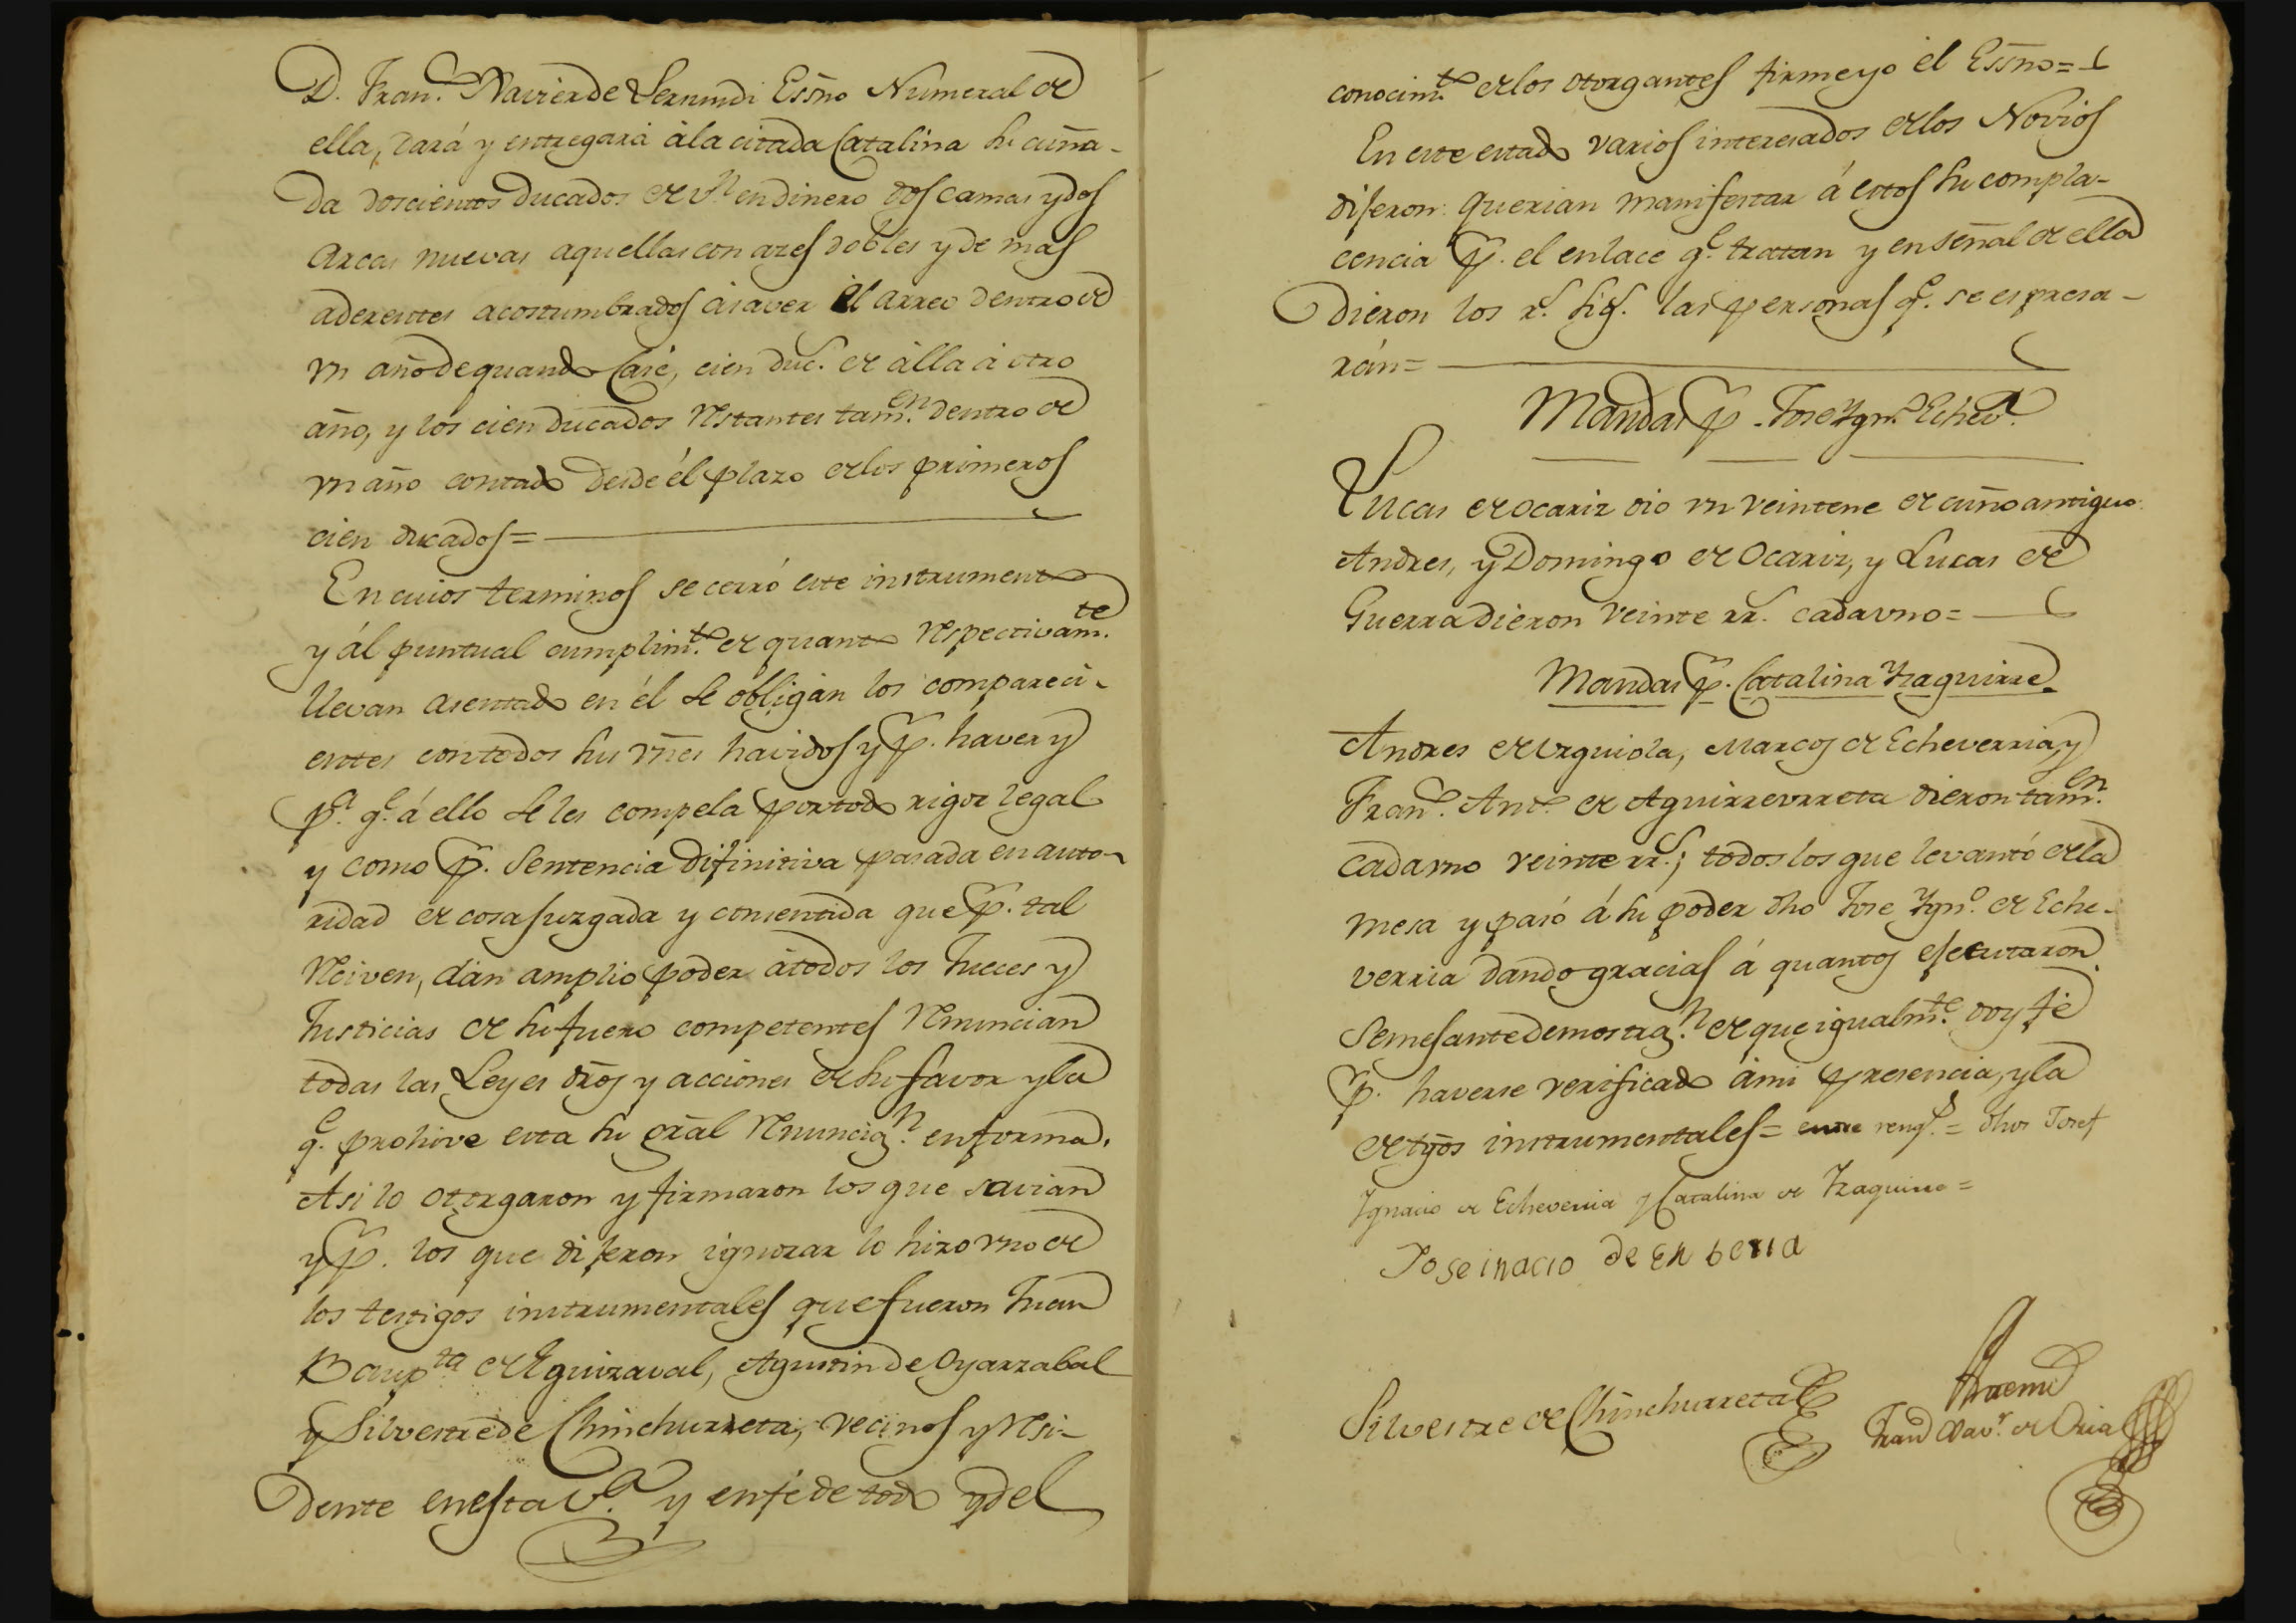 D. Fran.co Xavier de Lersundi Essno Numeral de
ella, dará y entregará à la citada Catalina su cuña-
da doscientos Ducados de v.n en dinero dos camas y dos
arcas nuevas aquellas con azes dobles y de mas
aderentes acostumbrados à saver el arreo dentro de
vn año de quando Case, cien duc.s de àlla à otro
año, y los cien ducados restantes tam.en dentro de
vn año contado desde él plazo de los primeros
cien ducados =
En cuios terminos se cerró este instrumento
y ál puntual cumplim.to de quanto respectivam.te
llevan asentado en él se obligan los compareci-
entes con todos sus vnes havidos y p.r haver y
p.a q.e á ello se les compela por todo rigor legal
y como p.r Sentencia difinitiva pasada en auto-
ridad de cosa juzgada y consentida que p.r tal
reciven, dan amplio poder à todos los Jueces y
Justicias de su fuero competentes renuncian
todas las Leyes drōs y acciones de su favor y la
q.e prohive esta su grāl renunciaz.n en forma.
Asi lo otorgaron y firmaron los que savian
y p.r los que dijeron ignorar lo hizo vno de
los testigos instrumentales que fueron Juan
Baup.ta de Eguizaval, Agustin de Oyarzabal
y Silvestre de Chinchurreta, vecinos y resi-
dente en esta v.a y en fé de todo y del
conocim.to de los otorgantes firme yo el Essno =
En este estado varios interesados de los Novios
dijeron: querian manifestar á estos su compla-
cencia p.r el enlace q.e tratan y en señal de ella
dieron los r.s sig.s las personas q.e se espresa-
rán =
Mandas p.r Jose Ygn.o Echev.a
Lucas de Ocariz dio vn veintene de cuño antiguo
Andres, y Domingo de Ocariz, y Lucas de
Guerra dieron veinte rr.s cada vno =
Mandas p.r Catalina Yzaguirre
Andres de Urquiola, Marcos de Echeverria, y
Fran.co Ant.o de Aguirreurreta dieron tam.en
cada vno veinte rr.s; todos los que levantó de la
mesa y pasó á su poder dho Jose Ygn.o de Eche-
verria dando gracias á quantos ejecutaron
semejante demostraz.n de que igualm.te doy fé
p.r haverse verificado à mi presencia, y la
de tgōs instrumentales = entre reng.s = dhos Josef
Ygnacio de Echeverria y Catalina de Yzaguirre =
Jose inacio de Eh beria
Silvestre de Chinchurreta
Ante mi
Fran.co Xav.r de Oria